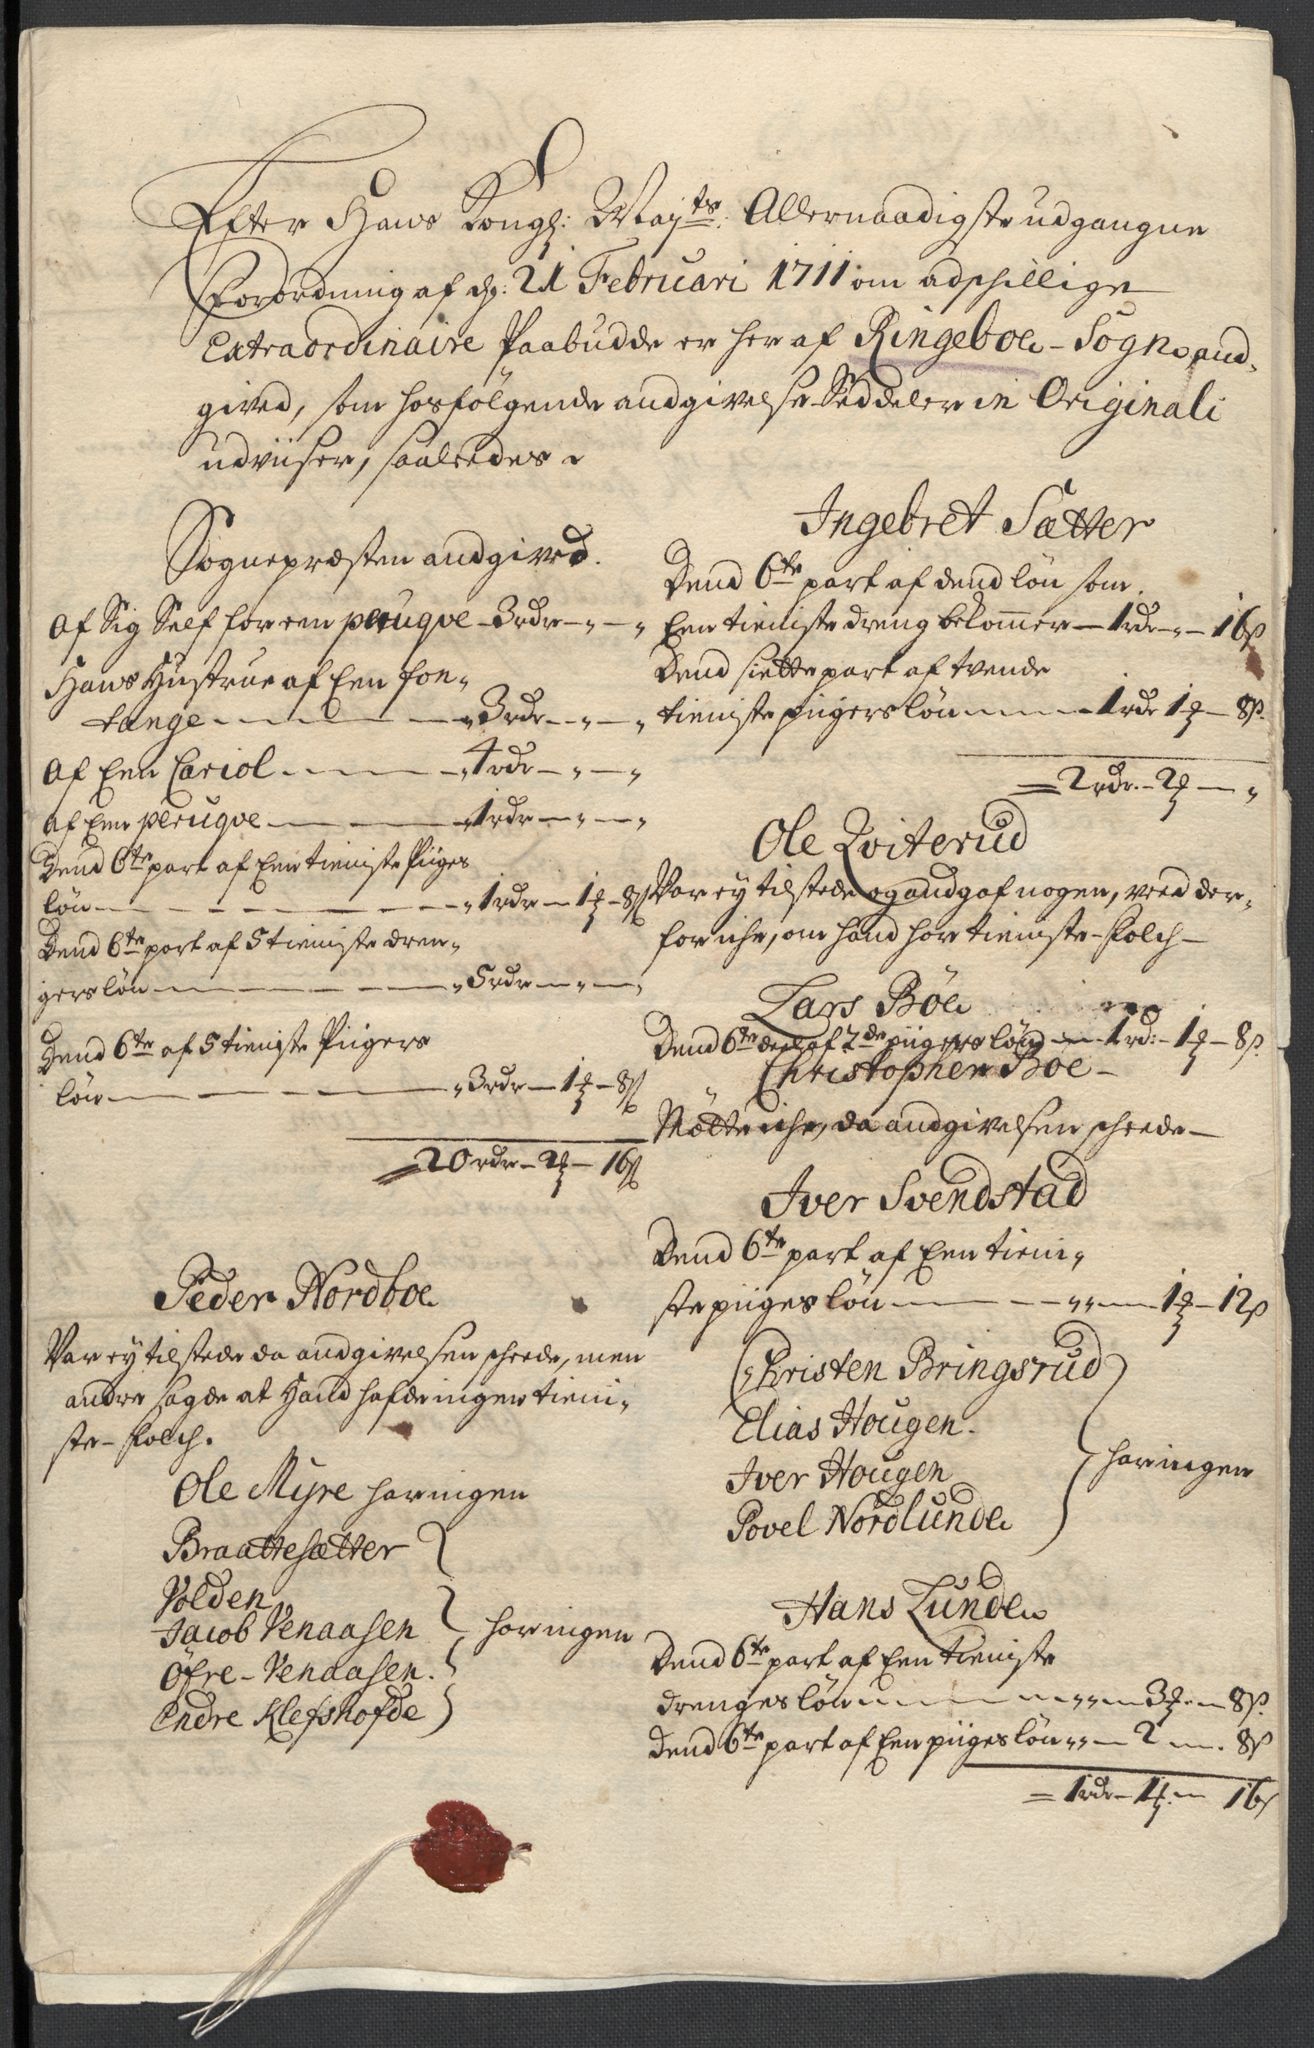 Efter Hans Kongl: Mayts. Allernaadigste udgangne
Forordning af d: 21 Februari 1711 om adskillige
Extraordinaire Paabudde er her af Ringeboe-Sogn and-
gived, som hosfölgende andgivelse Seddeler in Originali
udviiser, saaledes
Sognepræsten andgived.
Af Sig Self for een peruqve - 3 rdr - " - "
Hans Hustrue af Een fon-
tange - " 3 rdr - " - "
Af Een Cariol - " 4 rdr - " - "
af Een peruqve - 1 rdr - " - "
Dend 6te part af Een tieniste Piiges
lön - " 1 rdr - 1 ß - 8 ß
Dend 6te part af 5 tieniste dren-
gers lön - " 5 rdr - " - "
Dend 6te af 5 tieniste Piigers
lön - " 3 rdr - 1 - 8 ß
= 20 rdr - 2 - 16 ß
Peder Nordboe
Var ey tilstede da andgivelsen skeede, men
andre sagde at Hand hafde ingen tieni-
ste-folch.
Ole Myre har ingen
Braattesætter
Volden
Jacob Venaasen
Öfre-Venaasen.
Endre Klefshofde
har ingen
Ingebret Sætter
Dend 6te part af dend lön som
Een tieniste dreng bekommer - 1 rdr - " - 16 ß
Dend siette part af tvende
tieniste piigers lön - 1 rdr 1 - 8 ß
= 2 rdr - 2 - "
Ole Qviterud
Var ey tilstede og andgaf nogen, veed der-
for iche, om hand har tieniste-folch -
Lars Böe
Dend 6te deel af 2de piigers lön - 1 rd: 1 - 8 ß
Christopher Boe -
Mötte iche, da andgivelsen skeede -
Iver Svendstad
Dend 6te part af Een tieni-
ste piiges lön - " " - 1 - 12 ß
Christen Bringsrud
Elias Hougen.
Iver Hougen
Povel Nordlunde
har ingen
Hans Lunde
Dend 6te part af Een tieniste
drenges lön - " " - 3 - 8 ß
Dend 6te part af Een piiges lön " " - 2 - 8 ß
= 1 rdr - 1 - 16 ß